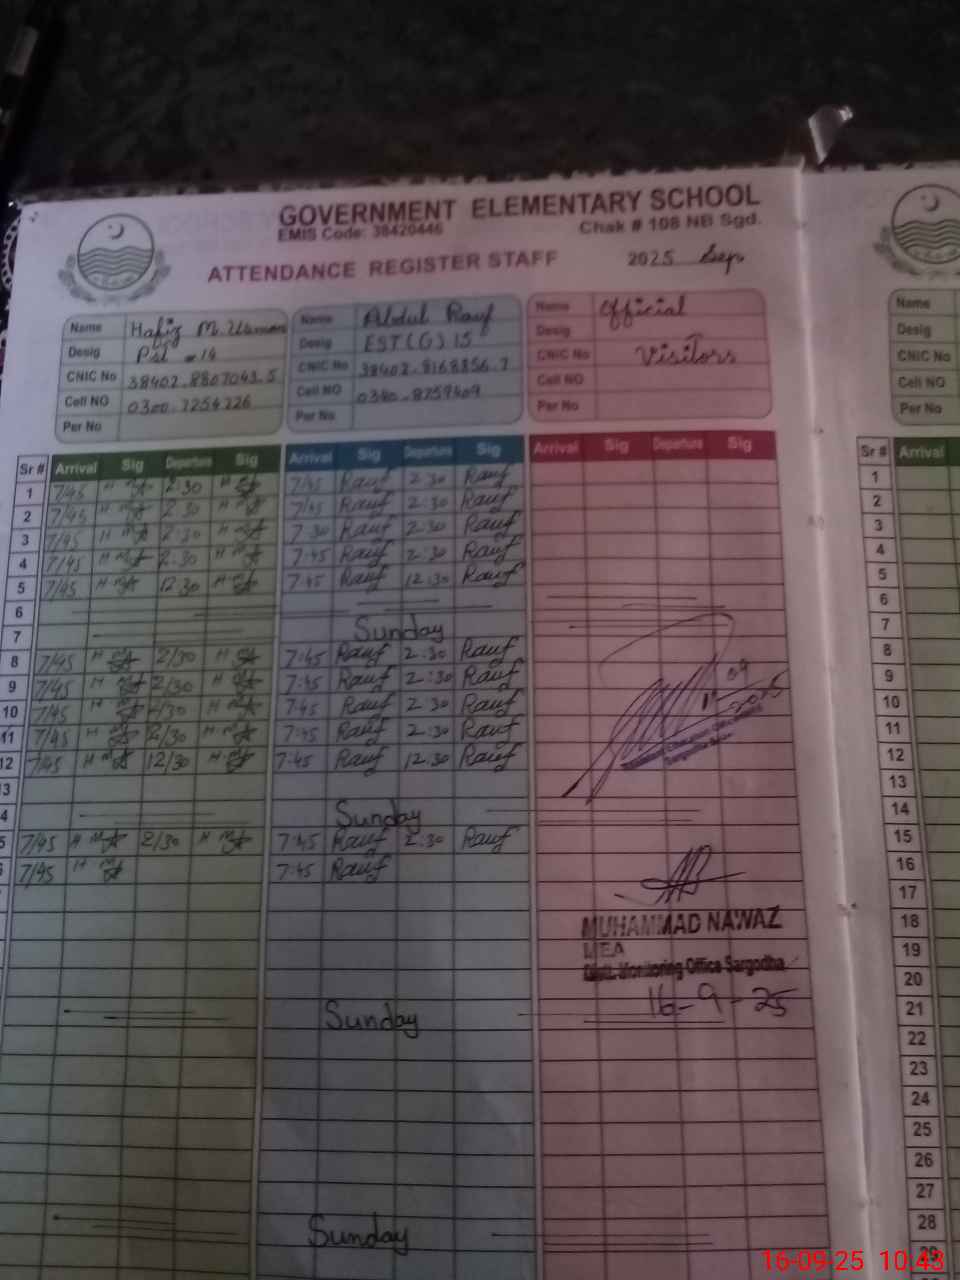 GOVERNMENT ELEMENTARY SCHOOL
EMIS Code: 38420446 Chak # 108 NB Sgd.
ATTENDANCE REGISTER STAFF 2025 Sep
Name Hafiz M. Usman Name Abdul Rauf Name Official Name
Desig Pst 14 Desig EST (G) 15 Desig Desig
CNIC No 38402.8807043.5 CNIC No 38402.8168356.7 CNIC No Visitors CNIC No
Cell NO 0300.7254226 Cell NO 0340.8259409 Cell NO Cell NO
Per No Per No Per No Per No
Sr # Arrival Sig Departure Sig Arrival Sig Departure Sig Arrival Sig Departure Sig Sr # Arrival
1 7/45 2:30 7/45 Rauf 2:30 Rauf 1
2 7/45 2:30 7/45 Rauf 2:30 Rauf 2
3 7/45 2:30 7:30 Rauf 2:30 Rauf 3
4 7/45 2:30 7:45 Rauf 2:30 Rauf 4
5 7/45 12:30 7:45 Rauf 12:30 Rauf 5
6 6
7 Sunday 7
8 7/45 2/30 7:45 Rauf 2:30 Rauf 8
9 7/45 2/30 7:45 Rauf 2:30 Rauf 9
10 7/45 2/30 7:45 Rauf 2:30 Rauf 10
11 7/45 2/30 7:45 Rauf 2:30 Rauf 11
12 7/45 12/30 7:45 Rauf 12:30 Rauf 12
13 13
4 Sunday 14
5 7/45 2/30 7:45 Rauf 2:30 Rauf 15
7/45 7:45 Rauf 16
17
MUHAMMAD NAWAZ 18
MEA 19
Monitoring Office Sargodha 20
16-9-25
Sunday 21
22
23
24
25
26
27
Sunday 28
29
16-09-25 10:43